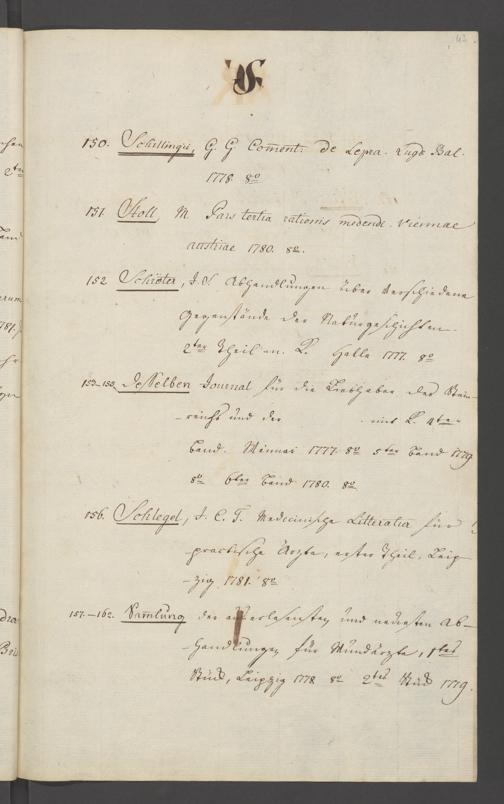 S
150. Schillingii, G. G Com̄ent: de Lepra. Lugd Bal.
1778 8º
151. Stoll M Pars tertia rationis medendi. Viennae
austriae 1780. 8º.
152 Schröter, J. S Abhandlungen über verschiedene
Gegenstände der Naturgeschichte.
2ter Theil m. K. Halle 1777. 8º
153-155. Desselben Journal für die Liebhaber des Stein-
-reichs und der mit K. 4ter
Band. Weimar 1777. 8º 5ter Band 1779
8º 6ter Band 1780. 8º
156. Schlegel, J. C. T. Medicinische Litteratur für
practische Ärzte, erster Theil, Leip-
-zig 1781. 8º
157.-162. Sam̄lung der auserlesensten und neuesten Ab-
-handlungen für Wundärzte, 1tes
Stück, Leipzig 1778 8º 2tes Stück 1779.